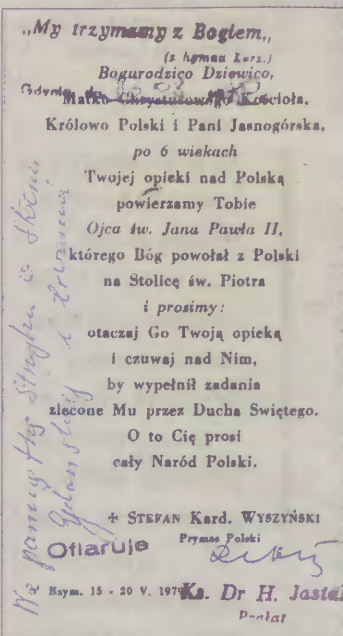 „My trzymamy z Bogiem„
(z hymnu Kurz.)
Bogurodzico Dziewico,
Gdynia
Matko Chrystusowego Kościoła,
Królowo Polski i Pani Jasnogórska,
po 6 wiekach
Twojej opieki nad Polską
powierzamy Tobie
Ojca św. Jana Pawła II,
którego Bóg powołał z Polski
na Stolicę św. Piotra
i prosimy:
otaczaj Go Twoją opieką
i czuwaj nad Nim,
by wypełnił zadania
zlecone Mu przez Ducha Swiętego.
O to Cię prosi
cały Naród Polski.
+ STEFAN Kard. WYSZYŃSKI
Prymas Polski
Ofiaruje
Rzym. 15 - 20 V. 1979
Ks. Dr H. Jastak
Prałat
Na pamiątkę